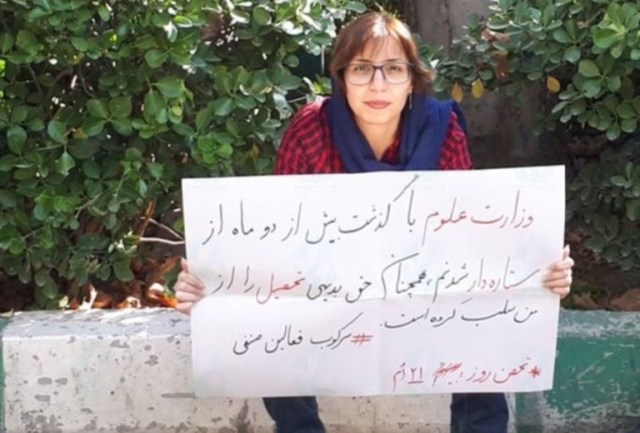 وزارت علوم با گذشت بیش از دو ماه از
ستاره‌دار شدنم، همچنان حق بدیهی تحصیل را از
من سلب کرده است. #سرکوب فعالین صنفی
#تحصن روز ۲۱ اُم